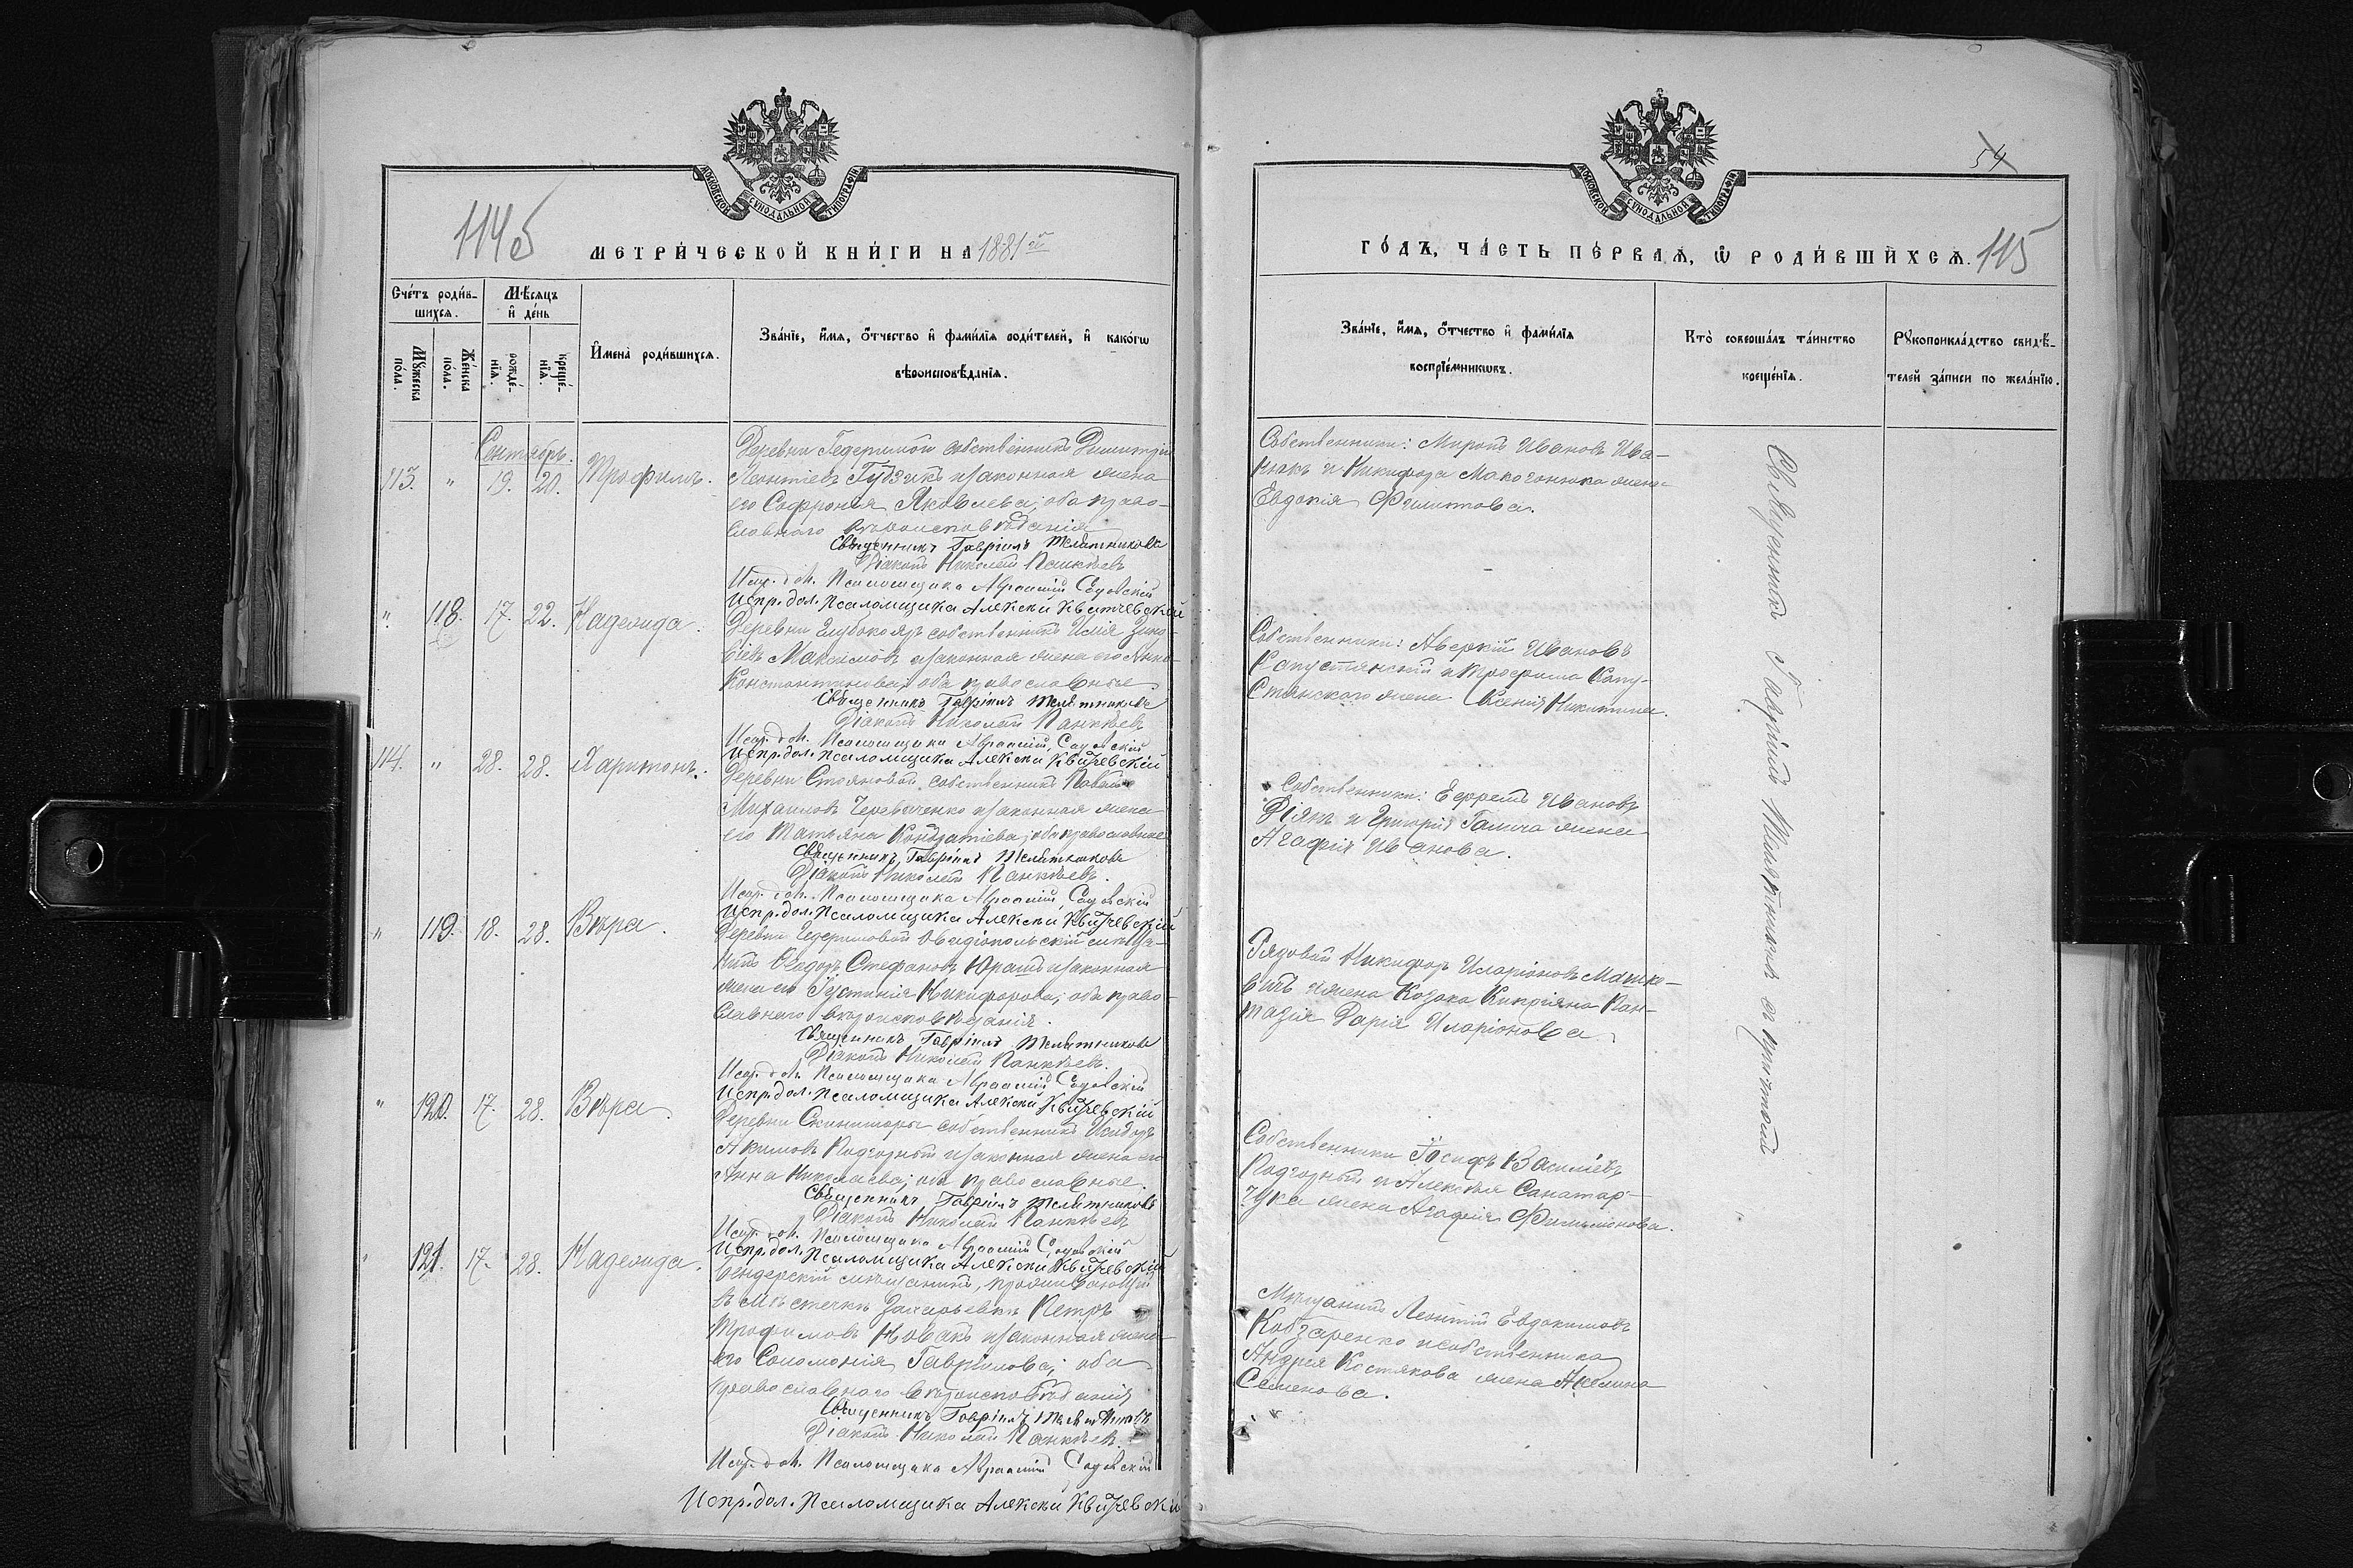 МОСКОВСКОЙ СѴНОДАЛЬНОЙ ТИПОГРАФІИ
114 об
МЕТРИ́ЧЕСКОЙ КНИ́ГИ НА 1881 й
Счéтъ роди́в-
шихсѧ.
Мѣ́сѧцъ
и҆ де́нь
Мꙋ́жеска
по́ла.
Же́нска
по́ла.
рожде́-
нїѧ.
креще́-
нїѧ.
И҆мена̀ роди́вшихсѧ.
Зва́нїе, и҆́мѧ, ѻ҆́тчество и҆ фами́лїѧ роди́телей, и҆ како́гѡ
вѣроисповѣ́данїѧ.
Сентябрь.
113. " 19. 20. Трофимъ.
Деревни Гедеримовой собственникъ Димитрій
Леонтіевъ Гудзикъ и законная жена
его Софронія Яковлева; оба право-
славнаго вѣроисповѣданія
Священникъ Гавріилъ Телятниковъ
Діаконъ Николай Панкѣевъ
Испр. дол. Псаломщика Авраамій Садовскій
Испр. дол. Псаломщика Алексѣй Квитчевскій
" 118. 17. 22. Надежда.
Деревни Глубокояръ собственникъ Илія Зино-
віевъ Максимовъ и законная жена его Анна
Константинова; оба православные
Священникъ Гавріилъ Телятниковъ
Діаконъ Николай Панкѣевъ
Испр. дол. Псаломщика Авраамій Садовскій
Испр. дол. Псаломщика Алексѣй Квитчевскій
114. " 28. 28. Харитонъ.
Деревни Стояновой собственникъ Павелъ
Михаиловъ Черевиченко и законная жена
его Татьяна Кондратіева; оба православные
Священникъ Гавріилъ Телятниковъ
Діаконъ Николай Панкѣевъ.
Испр. дол. Псаломщика Авраамій Садовскій
Испр. дол. Псаломщика Алексѣй Квитчевскій
" 119. 18. 28. Вѣра.
Деревни Гедеримовой Овидіопольскій мѣща-
нинъ Ѳеодоръ Стефановъ Юрашъ и законная
жена его Іустинія Никифорова; оба право-
славнаго вѣроисповѣданія.
Священникъ Гавріилъ Телятниковъ
Діаконъ Николай Панкѣевъ.
Испр. дол. Псаломщика Авраамій Садовскій
Испр. дол. Псаломщика Алексѣй Квитчевскій
" 120. 17. 28. Вѣра.
Деревни Скиншоры собственникъ Исидоръ
Акимовъ Подгорный и законная жена его
Анна Николаева; оба православные.
Священникъ Гавріилъ Телятниковъ
Діаконъ Николай Панкѣевъ
Испр. дол. Псаломщика Авраамій Садовскій
Испр. дол. Псаломщика Алексѣй Квитчевскій
" 121. 17. 28. Надежда.
Бендерскій мѣщанинъ, проживающій
въ мѣстечкѣ Захарьевкѣ Петръ
Трофимовъ Новакъ и законная жена
его Соломонія Гавріилова; оба
православнаго вѣроисповѣданія
Священникъ Гавріилъ Телятниковъ
Діаконъ Николай Панкѣевъ.
Испр. дол. Псаломщика Авраамій Садовскій
Испр. дол. Псаломщика Алексѣй Квитчевскій
МОСКОВСКОЙ СѴНОДАЛЬНОЙ ТИПОГРАФІИ
54
ГО́ДЪ, ЧА́СТЬ ПЕ́РВАѦ, Ѡ҆ РОДИ́ВШИХСѦ. 115
Зва́нїе, и҆́мѧ, ѻ҆́тчество и҆ фами́лїѧ
воспрїе́мникѡвъ.
Кто̀ соверша́лъ та́инство
креще́нїѧ.
Рꙋкоприкла́дство свидѣ́-
телей за́писи по жела́нїю.
Собственники: Миронъ Ивановъ Ива-
нюкъ и Никифора Макогонюка жена
Евдокія Филиппова.
Собственники: Аверкій Ивановъ
Капустянскій и Трофима Капу-
стянскаго жена Ксенія Никитина.
Собственники: Ефремъ Ивановъ
Діякъ и Григорія Галича жена
Агафія Иванова.
Рядовой Никифоръ Иларіоновъ Машке-
вичъ и жена Козака Кипріяна Пан-
тазія Дарія Иларіонова
Собственники Іосифъ Василіевъ
Подгорный и Алексѣя Санатар-
чука жена Агафія Филимонова.
Мѣщанинъ Леонтій Евдокимовъ
Кобзаренко и собственника
Андрея Костякова жена Акелина
Семенова.
Священникъ Гавріилъ Телятниковъ съ причтомъ